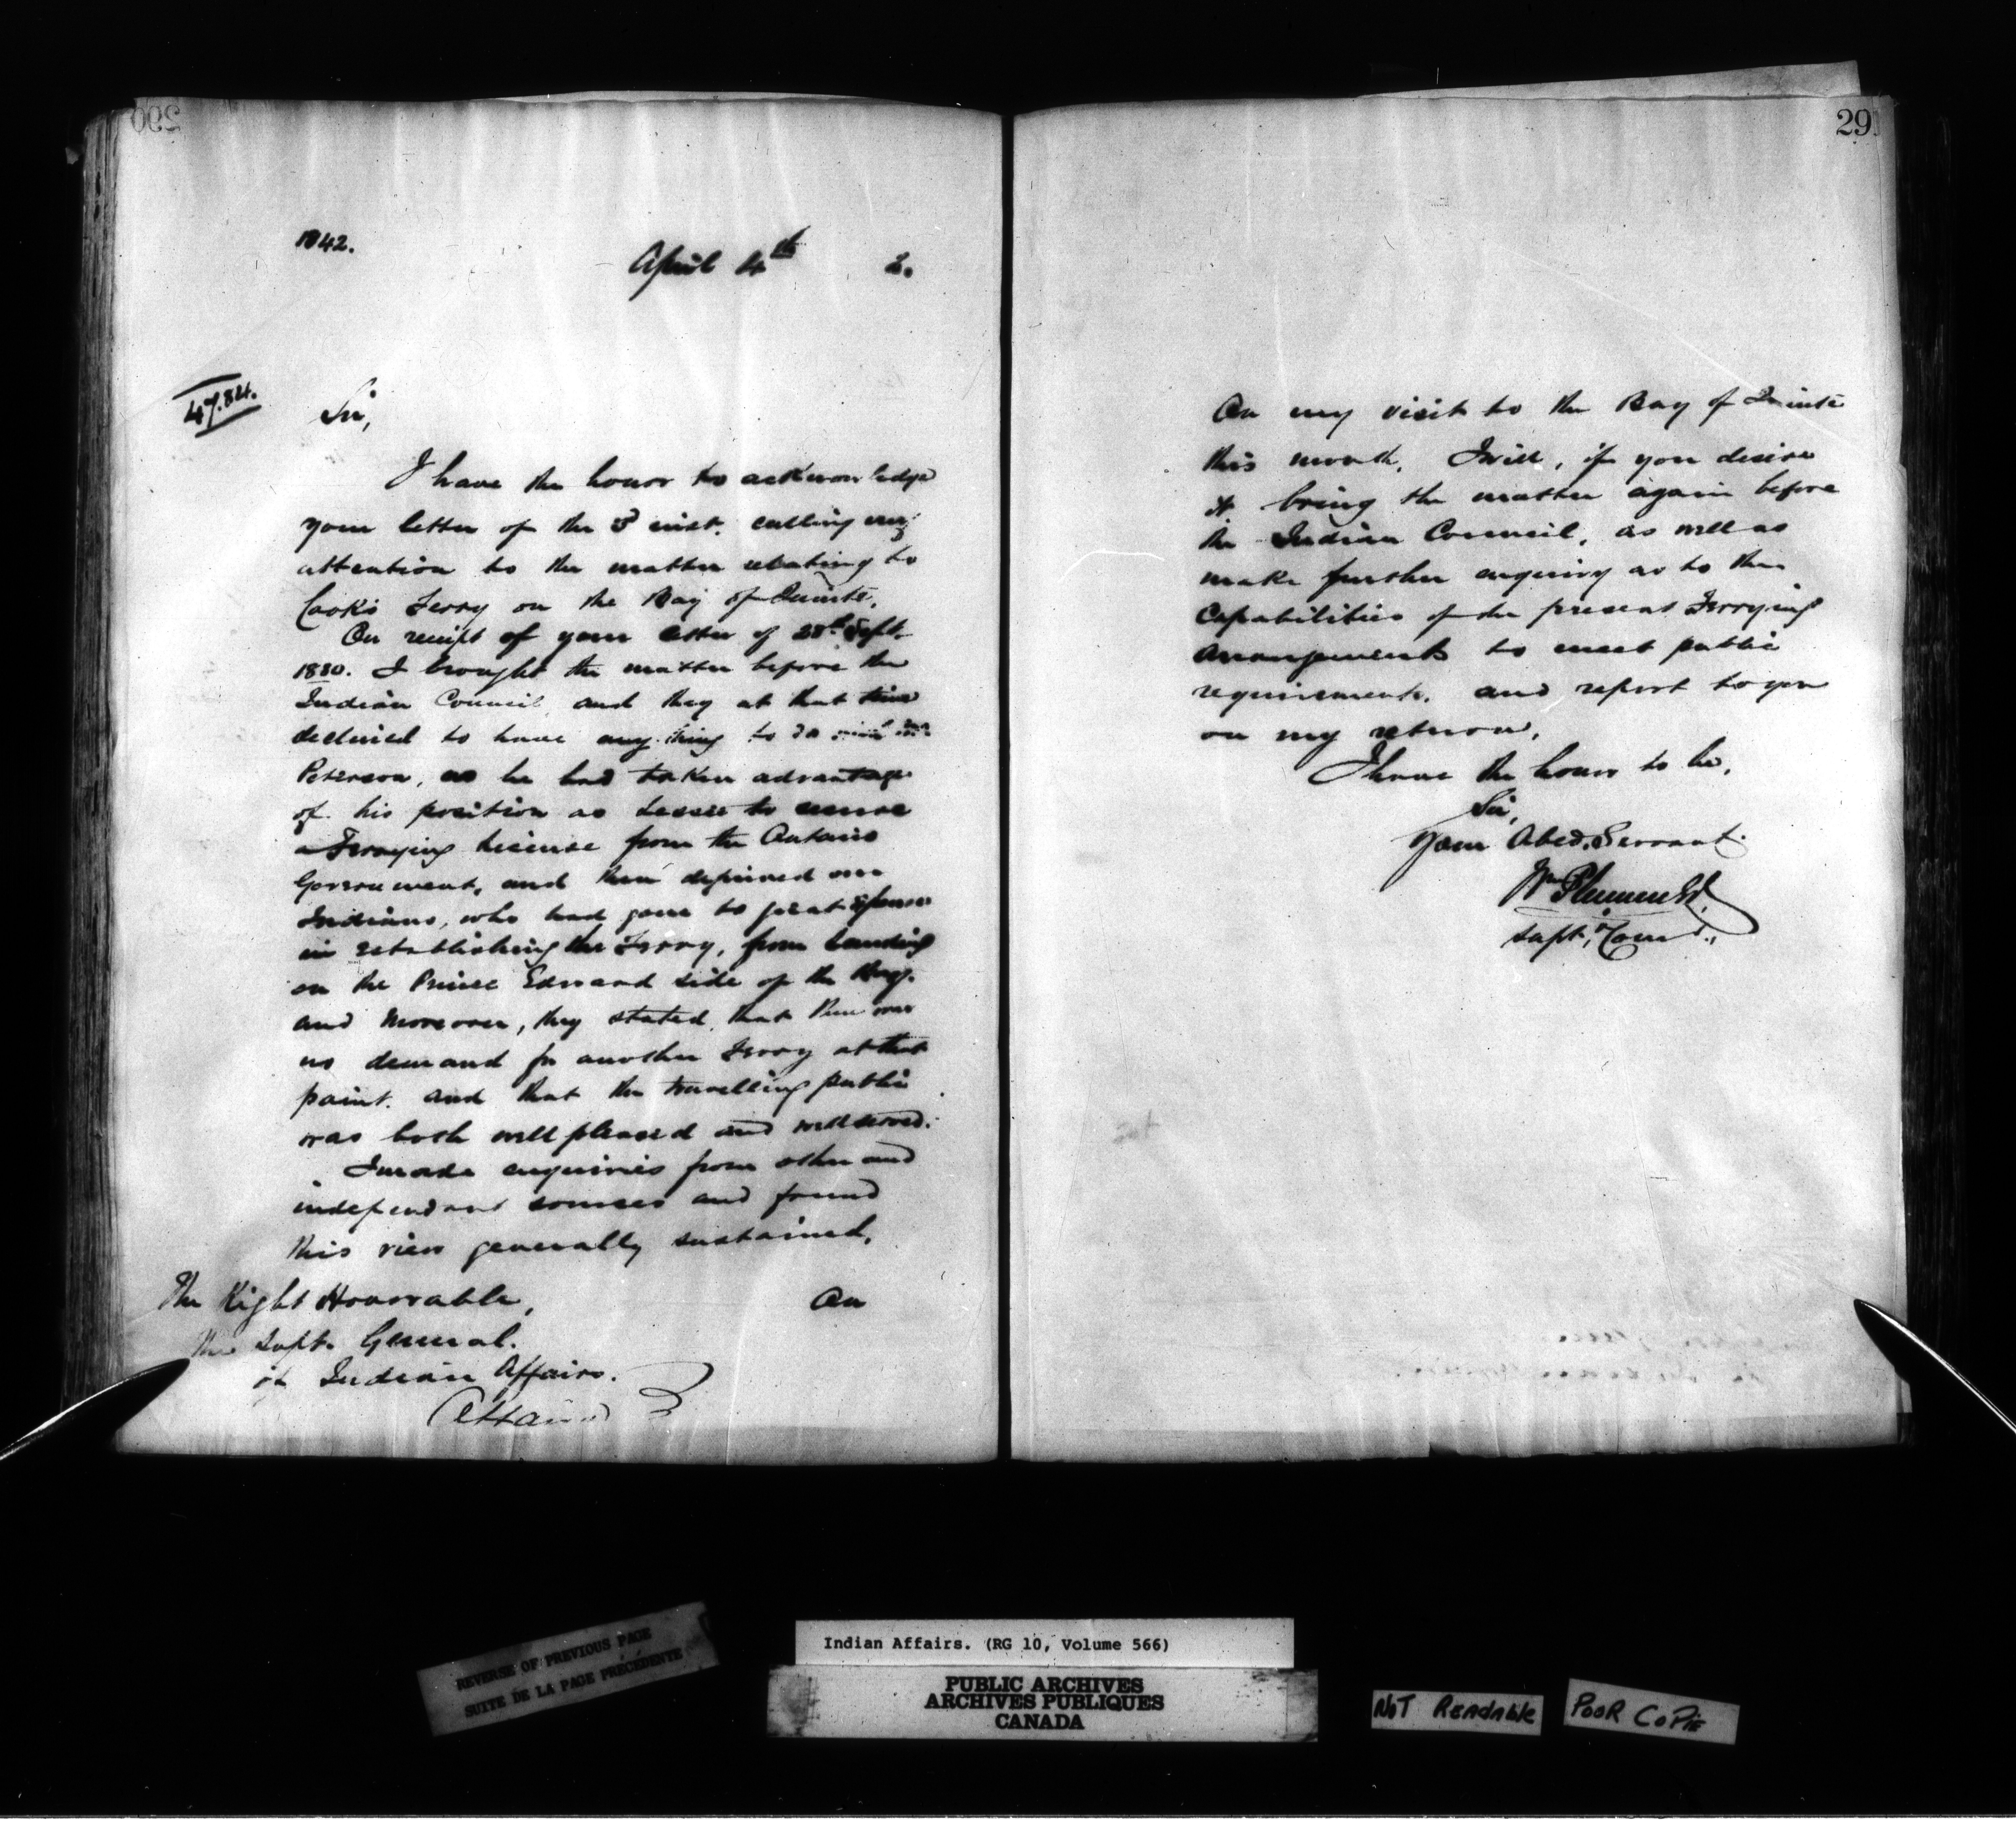 290
1842.
April 4th 2.
47.841.
Sir,
I have the honor to acknowledge
your letter of the 3 inst. calling my
attention to the matter relating to
Cook's Ferry on the Bay of Quinte.
On receipt of your letter of 28th Sept.
1880. I brought the matter before the
Indian Council, and they at that time
declined to have anything to do with
Peterson, as he had taken advantage
of his position as Lessee to secure
a Ferrying license from the Ontario
Government, and then deprived our
Indians, who had gone to great expense
in establishing the Ferry, from landing
on the Prince Edward side of the Bay.
and moreover, they stated that there was
no demand for another Ferry at that
point. and that the travelling public
was both well pleased and well served.
I made enquiries from other and
independant sources and found
this view generally sustained.
The Right Honorable,
On
The Supt. General.
of Indian Affairs.
Ottawa
29
On my visit to the Bay of Quinté
this month, I will, if you desire
it bring the matter again before
the Indian Council, as well as
make further enquiry as to the
Capabilities of the present Ferrying
Arrangements to meet public
requirements, and report to you
on my return.
I have the honor to be,
Sir,
Your Obed. Servant
Wm Plummer
Supt. & Comr.
REVERSE OF PREVIOUS PAGE
SUITE DE LA PAGE PRÉCÉDENTE
Indian Affairs. (RG 10, Volume 566)
PUBLIC ARCHIVES
ARCHIVES PUBLIQUES
CANADA
NOT READABLE
POOR COPIE